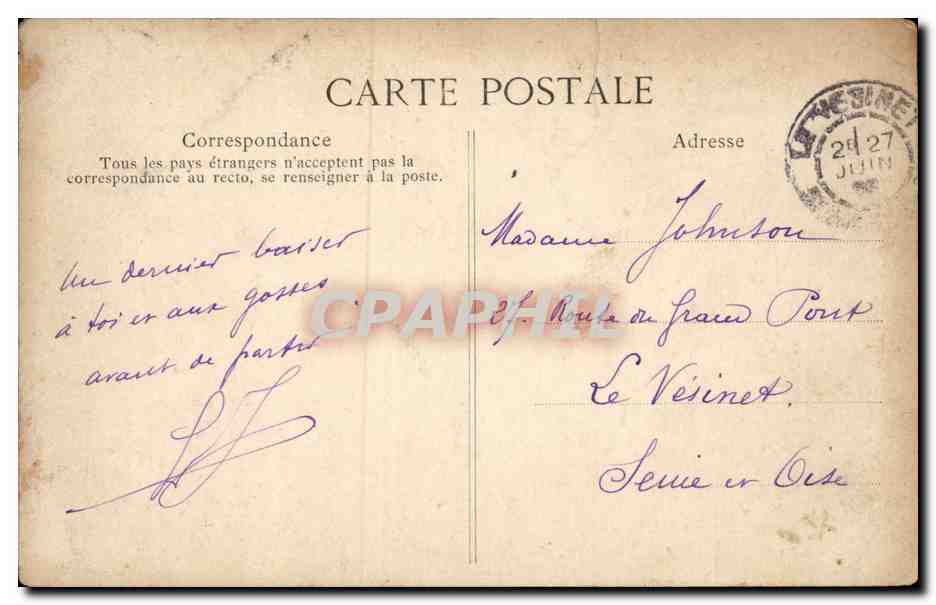 CARTE POSTALE
Correspondance
Tous les pays étrangers n'acceptent pas la
correspondance au recto, se renseigner à la poste.
un dernier baiser
à toi et aux gosses
avant de partir
Adresse
Madame Johnson
27. Route du Grand Pont
Le Vésinet.
Seine et Oise
LE VESINET
2E 27
JUIN
CPAPHIL